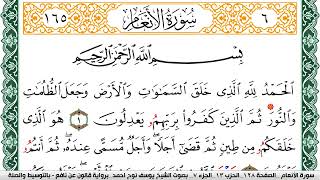 ١٦٥ سُورَةُ الأَنْعَامِ ٦
بِسْمِ اللَّهِ الرَّحْمَٰنِ الرَّحِيمِ
الْحَمْدُ لِلَّهِ الَّذِي خَلَقَ السَّمَٰوَٰتِ وَالْأَرْضَ وَجَعَلَ الظُّلُمَٰتِ
وَالنُّورَ ثُمَّ الَّذِينَ كَفَرُوا بِرَبِّهِمْ يَعْدِلُونَ ١ هُوَ الَّذِي
خَلَقَكُم مِّن طِينٍ ثُمَّ قَضَىٰ أَجَلًا وَأَجَلٌ مُّسَمًّى عِندَهُ ثُمَّ أَنتُمْ
سورة الأنعام - الصفحة ١٢٨ - الحزب ١٣ - الجزء ٧ - بصوت الشيخ يوسف نوح احمد - برواية قالون عن نافع - بالتوسيط والصلة